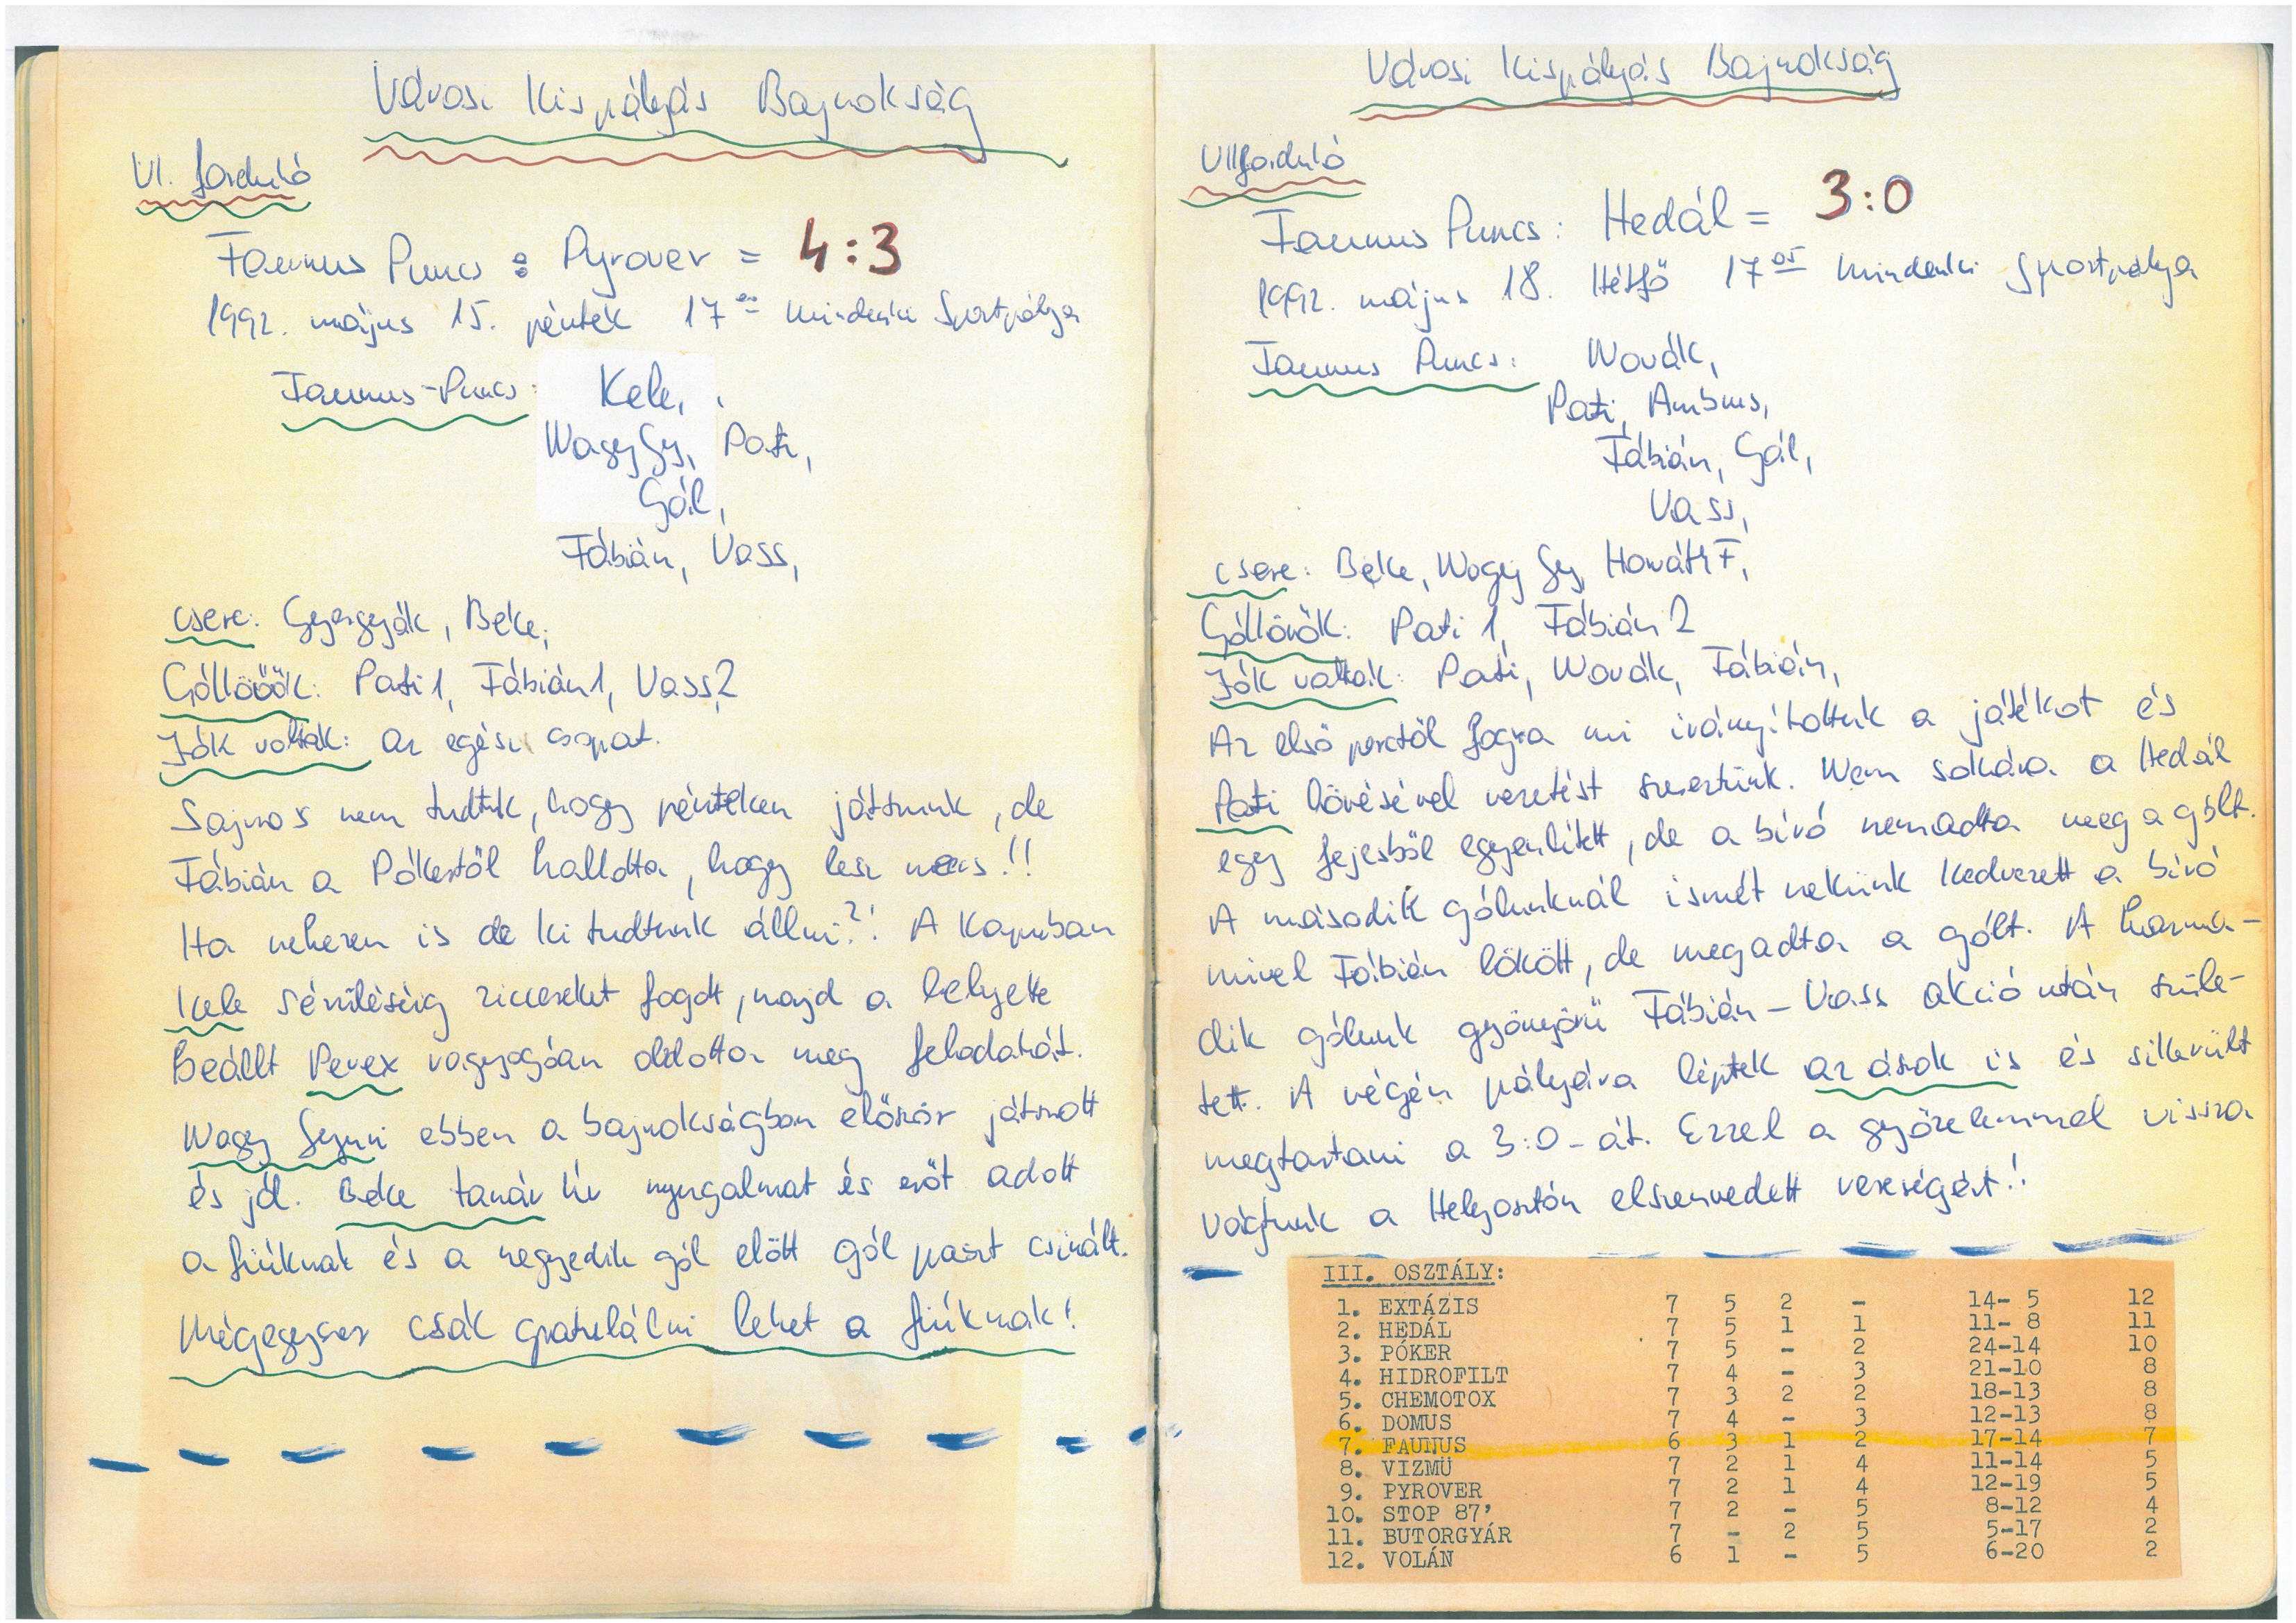 Városi Kispályás Bajnokság
VI. forduló
Faunus Puncs : Pyrover = 4:3
1992. május 15. péntek 17⁰⁰ Mindenki Sportpálya
Faunus-Puncs: Kele,
Nagy Gy, Pati,
Gál,
Fábián, Vass,
csere: Gyergyák, Béke,
Góllövők: Pati 1, Fábián 1, Vass 2
Jók voltak: az egész csapat.
Sajnos nem tudtuk, hogy pénteken játszunk, de
Fábián a Pókertől hallotta, hogy lesz meccs!!
Ha nehezen is de ki tudtunk állni?! A kapuban
Kele sérüléséig ziccereket fogott, majd a helyette
Beállt Perex nagyszerűen oldotta meg feladatát.
Nagy Gyuri ebben a bajnokságban először játszott
és jól. Béke tanár úr nyugalmat és erőt adott
a fiúknak és a negyedik gól előtt gól passzt csinált.
Mégegyszer csak gratulálni lehet a fiúknak!
Városi Kispályás Bajnokság
VII forduló
Faunus Puncs: Hedál = 3:0
1992. május 18. Hétfő 17⁰⁵ Mindenki Sportpálya
Faunus Puncs: Novák,
Pati, Ambrus,
Fábián, Gál,
Vass,
csere: Béke, Nagy Gy, Horváth F,
Góllövők: Pati 1, Fábián 2
Jók voltak: Pati, Novák, Fábián,
Az első perctől fogva mi irányítottuk a játékot és
Pati lövésével vezetést szereztünk. Nem sokára a Hedál
egy fejesből egyenlített, de a bíró nem adta meg a gólt.
A második gólunknál ismét nekünk kedvezett a bíró
mivel Fábián lökött, de megadta a gólt. A harma-
dik gólunk gyönyörű Fábián - Vass akció után szüle-
tett. A végén pályára léptek az ászok is és sikerült
megtartani a 3:0-át. Ezzel a győzelemmel vissza
vágtunk a Helyosztón elszenvedett vereségért!!
III. OSZTÁLY:
1. EXTÁZIS 7 5 2 - 14- 5 12
2. HEDÁL 7 5 1 1 11- 8 11
3. PÓKER 7 5 - 2 24-14 10
4. HIDROFILT 7 4 - 3 21-10 8
5. CHEMOTOX 7 3 2 2 18-13 8
6. DOMUS 7 4 - 3 12-13 8
7. FAUNUS 6 3 1 2 17-14 7
8. VIZMÜ 7 2 1 4 11-14 5
9. PYROVER 7 2 1 4 12-19 5
10. STOP 87' 7 2 - 5 8-12 4
11. BUTORGYÁR 7 - 2 5 5-17 2
12. VOLÁN 6 1 - 5 6-20 2